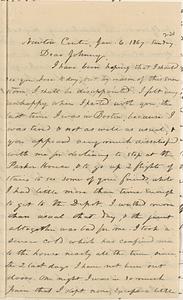 Newton Centre, Jan. 6. 1867. Sunday
Dear Johnny,
I have been hoping that I should
see you here to day, but by reason of this snow
storm, I shall be disappointed. I felt very
unhappy when I parted with you the
last time I was in Boston, because I
was tired & not as well as usual, &
you appeared very much dissatisfied
with me for declining to stop at the
Parker House & to go up 2 flights of
stairs to see some of your friends, while
I had little more than time enough
to get to the Depot. I walked more
than usual that day & the jaunt
altogether was bad for me. I took a
severe cold which has confined me
to the house nearly all the time since
2 last days I have not been out
doors. One night I was in so much
pain that I slept none, except a little